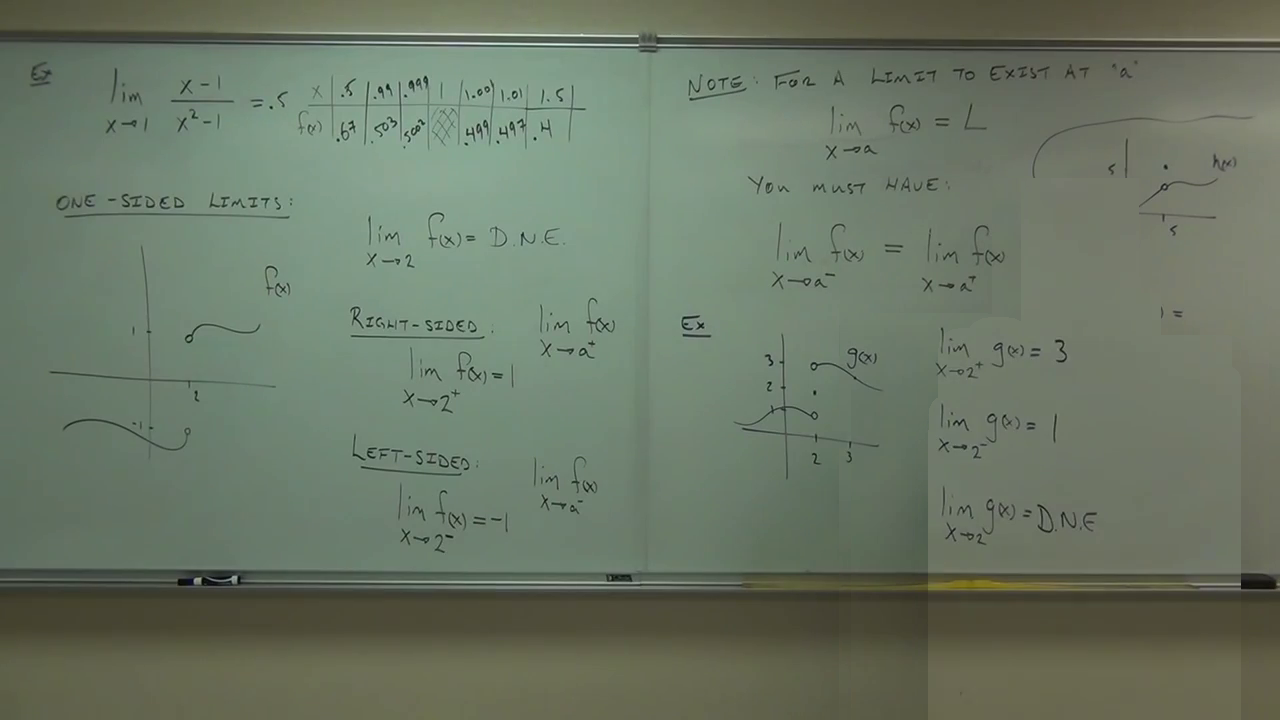 Ex
lim x→1 (x-1)/(x²-1) = .5
x | .5 | .99 | .999 | 1 | 1.001 | 1.01 | 1.5
f(x) | .67 | .503 | .5002 | | .499 | .497 | .4
ONE-SIDED LIMITS:
f(x)
1
2
-1
lim x→2 f(x) = D.N.E.
RIGHT-SIDED: lim x→a⁺ f(x)
lim x→2⁺ f(x) = 1
LEFT-SIDED: lim x→a⁻ f(x)
lim x→2⁻ f(x) = -1
NOTE: FOR A LIMIT TO EXIST AT "a"
lim x→a f(x) = L
YOU MUST HAVE:
lim x→a⁻ f(x) = lim x→a⁺ f(x)
5
h(x)
5
1 =
Ex
3
2
1
g(x)
2 3
lim x→2⁺ g(x) = 3
lim x→2⁻ g(x) = 1
lim x→2 g(x) = D.N.E